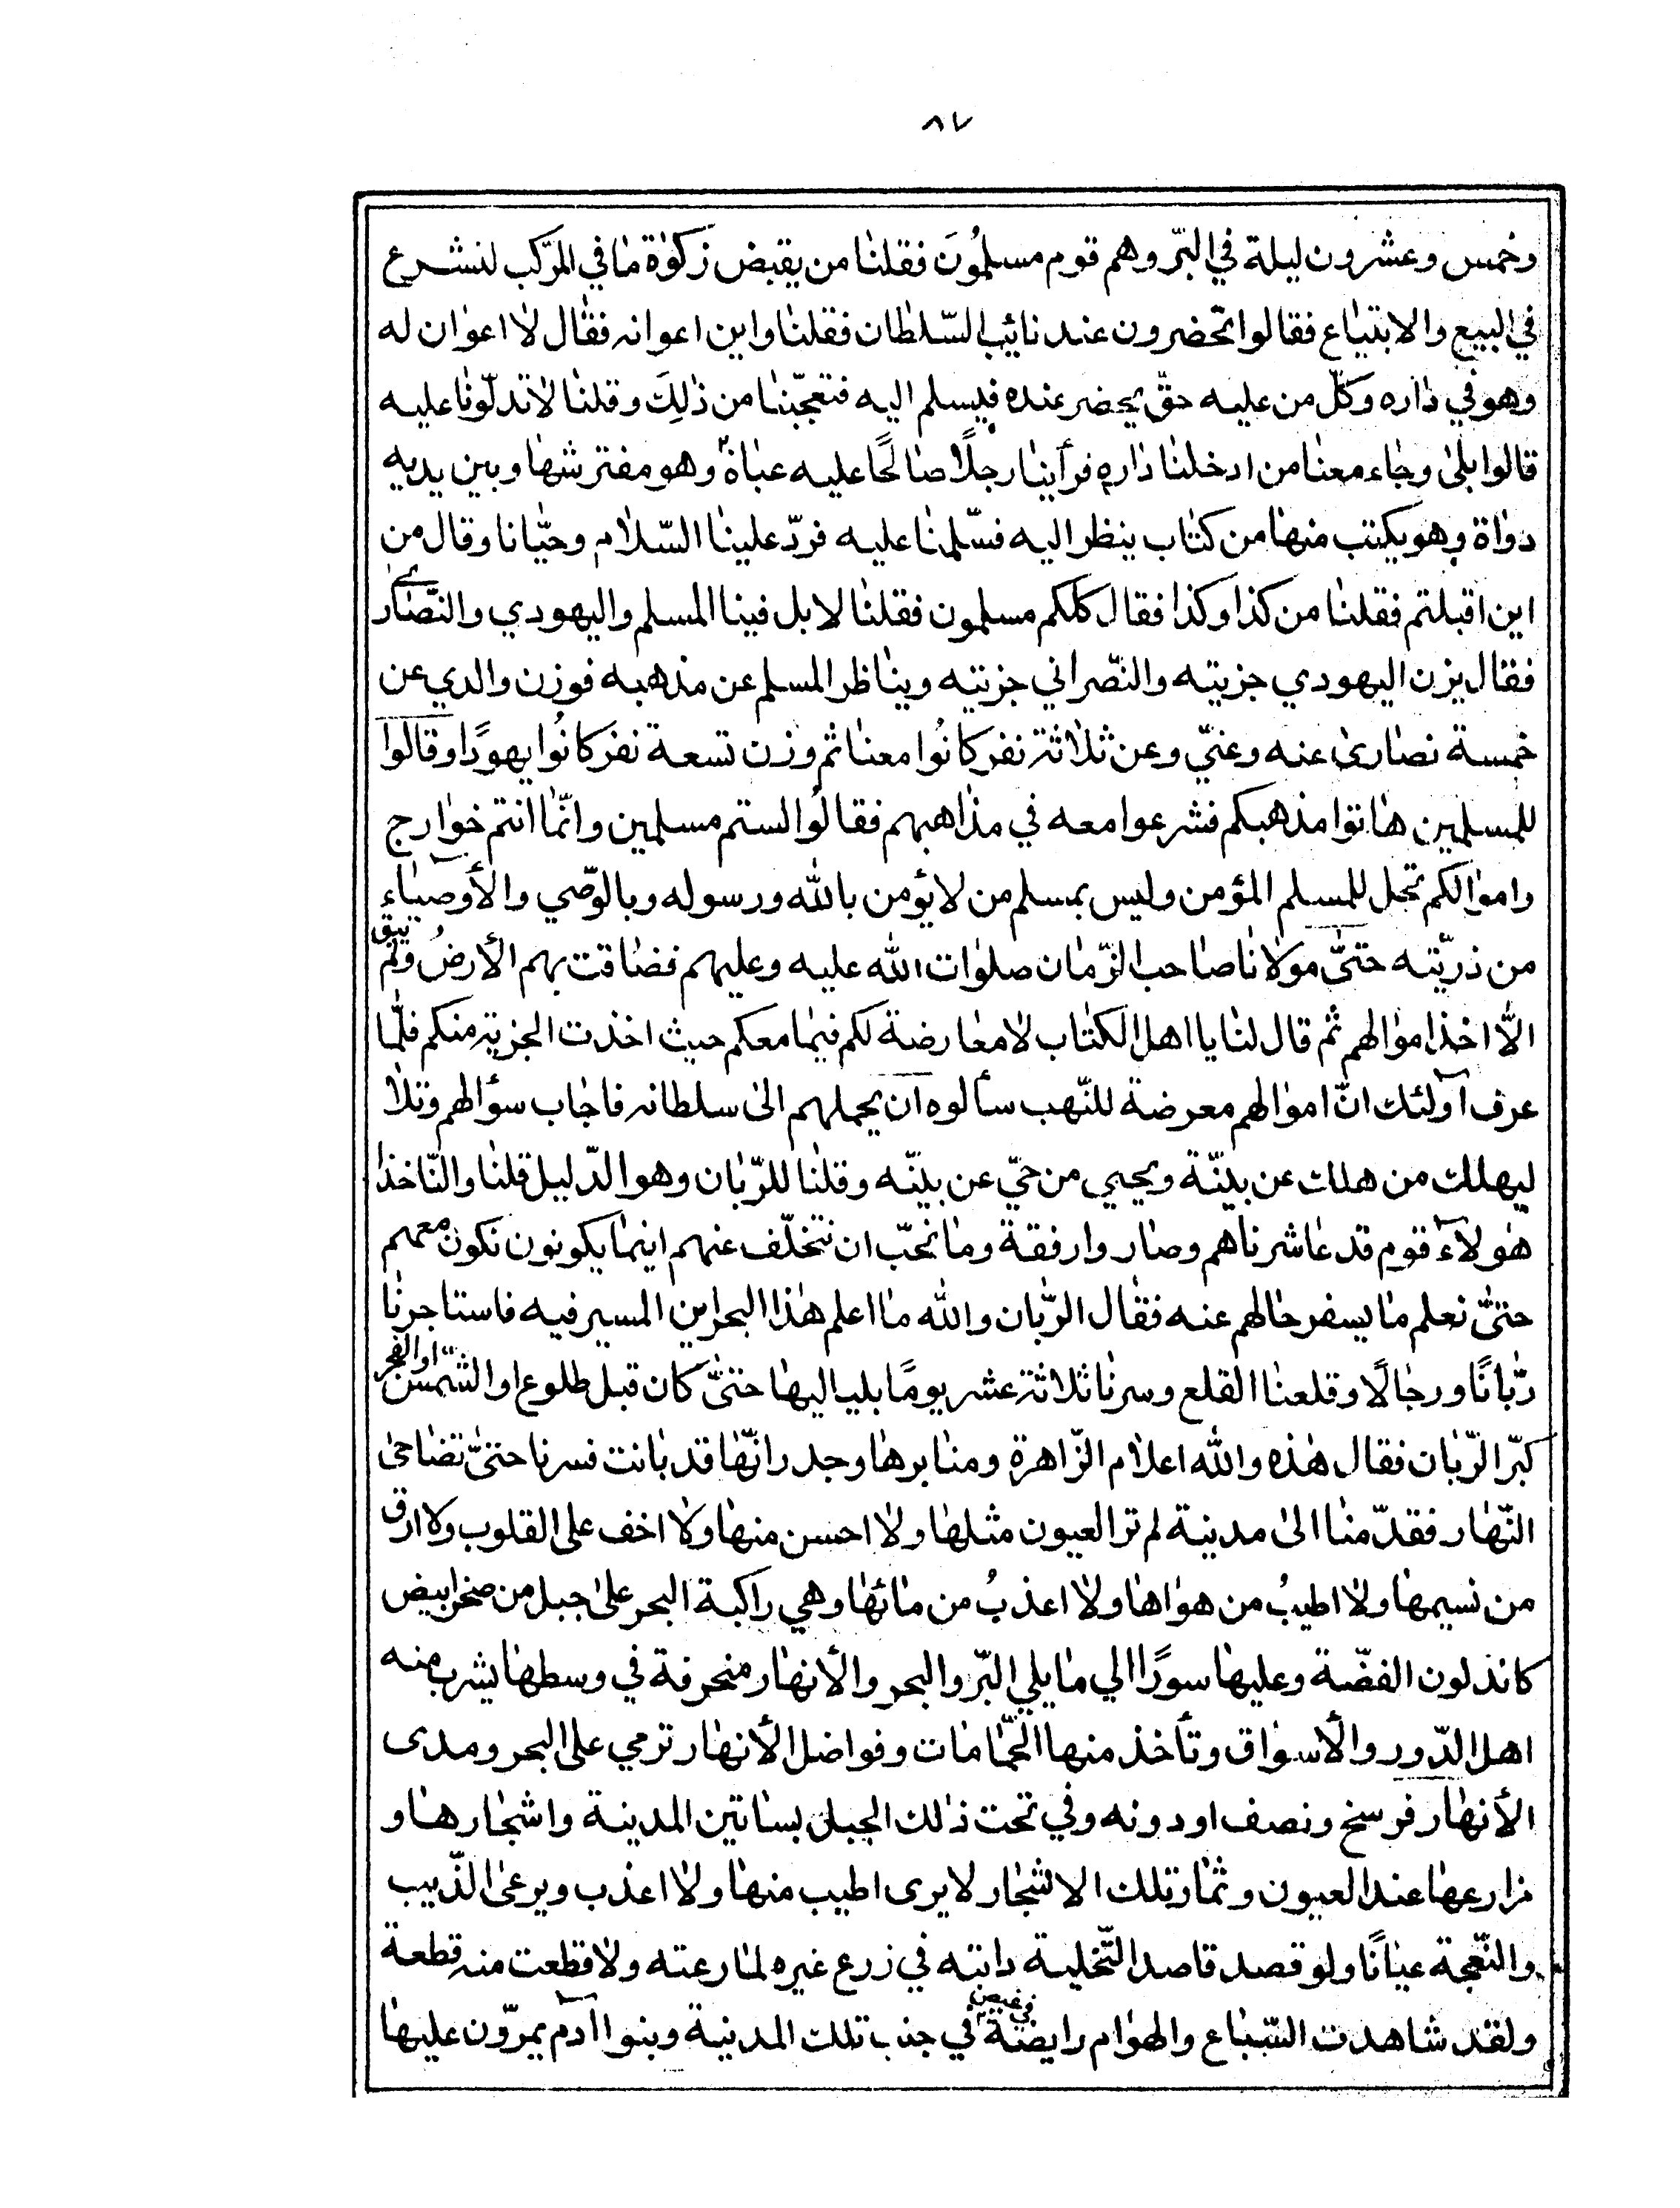 ٨٧
وخمس وعشرون ليلة في البرّ وهم قوم مسلمُونَ فقلنا من يقبض زكوٰة ما في المركب لنشرع
في البيع والابتياع فقالوا تحضرون عند نائب السّلطان فقلنا واين اعوانه فقال لا اعوان له
وهو في داره وكلّ من عليه حقّ يحضر عنده فيسلم اليه فتعجّبنا من ذٰلِكَ وقلنا لا تدلّونا عليه
قالوا بلىٰ وجاء معنا من ادخلنا داره فرأينا رجلًا صالحًا عليه عباة وهو مفترشها وبين يديه
دواة وهو يكتب منها من كتاب ينظر اليه فسّلمنا عليه فردّ علينا السّلام وحيّانا وقال من
اين اقبلتم فقلنا من كذا وكذا فقال كلكم مسلمون فقلنا لا بل فينا المسلم واليهودي والنّصارى
فقال يزن اليهودي جزيته والنّصراني جزيته ويناظر المسلم عن مذهبه فوزن والدي عن
خمسة نصارىٰ عنه وعنّي وعن ثلاثة نفر كانُوا معنا ثم وزن تسعة نفر كانُوا يهودًا وقالوا
للمسلمين هاتوا مذهبكم فشرعوا معه في مذاهبهم فقالُوا لستم مسلمين وانّما انتم خوارج
واموالكم تحل للمسلم المؤمن وليس بمسلم من لا يؤمن بالله ورسوله وبالوّصي والأوصياء
من ذريّته حتىّٰ مولانا صاحب الزّمان صلوات الله عليه وعليهم فضاقت بهم الأرضُ ولم يبق
الاّ اخذ اموالهم ثم قال لنا يا اهل الكتاب لا معارضة لكم فيما معكم حيث اخذت الجزية منكم فلّما
عرف اولئك انّ اموالهم معرضة للنّهب سألوه ان يحملهم الىٰ سلطانه فاجاب سؤالهم وتلا
ليهلك من هلك عن بيّنّة ويحيي من حيّ عن بيّنّه وقلنا للرّبان وهو الدّليل قلنا والنّاخذا
هٰولآء قوم قد عاشرناهم وصاروا رفقة وما نحبّ ان نتخلّف عنهم اينما يكونون نكون معهم
حتىّٰ نعلم ما يسفر حالهم عنه فقال الرّبان والله ما اعلم هٰذا البحر اين المسير فيه فاستاجرنا
ربّانًا ورجالًا وقلعنا القلع وسرنا ثلاثة عشر يومًا بلياليها حتىّٰ كان قبل طلوع او الشمس او الفجر
كبّر الرّبان فقال هٰذه والله اعلام الزّاهرة ومنابرها وجدرانّها قد بانت فسرنا حتىّٰ تضاحىٰ
النّهار فقدّمنا الىٰ مدينة لم تر العيون مثلها ولا احسن منها ولا اخف على القلوب ولا ارق
من نسيمها ولا اطيبُ من هواها ولا اعذبُ من مائها وهي راكبة البحر علىٰ جبل من صخر ابيض
كانذ لون الفضّة وعليها سورًا الي ما يلي البرّ والبحر والأنهار منحرفة في وسطها يشرب منه
اهل الدّور والأسواق وتأخذ منها الحمّامات وفواضل الأنهار ترمي على البحر ومدى
الأنهار فرسخ ونصف او دونه وفي تحت ذٰلك الجبل بساتين المدينة واشجارها و
مزارعها عند العيون وثمار تلك الاشجار لا يرى اطيب منها ولا اعذب ويرعىٰ الذّيب
والنّعجة عيانًا ولو قصد قاصد التّخلية دابته في زرع غيره لما رعته ولا قطعت منه قطعة
ولقد شاهدت السّباع والهوام رابضة في غيض في جنب تلك المدينة وبنوا آدم يمرّون عليها